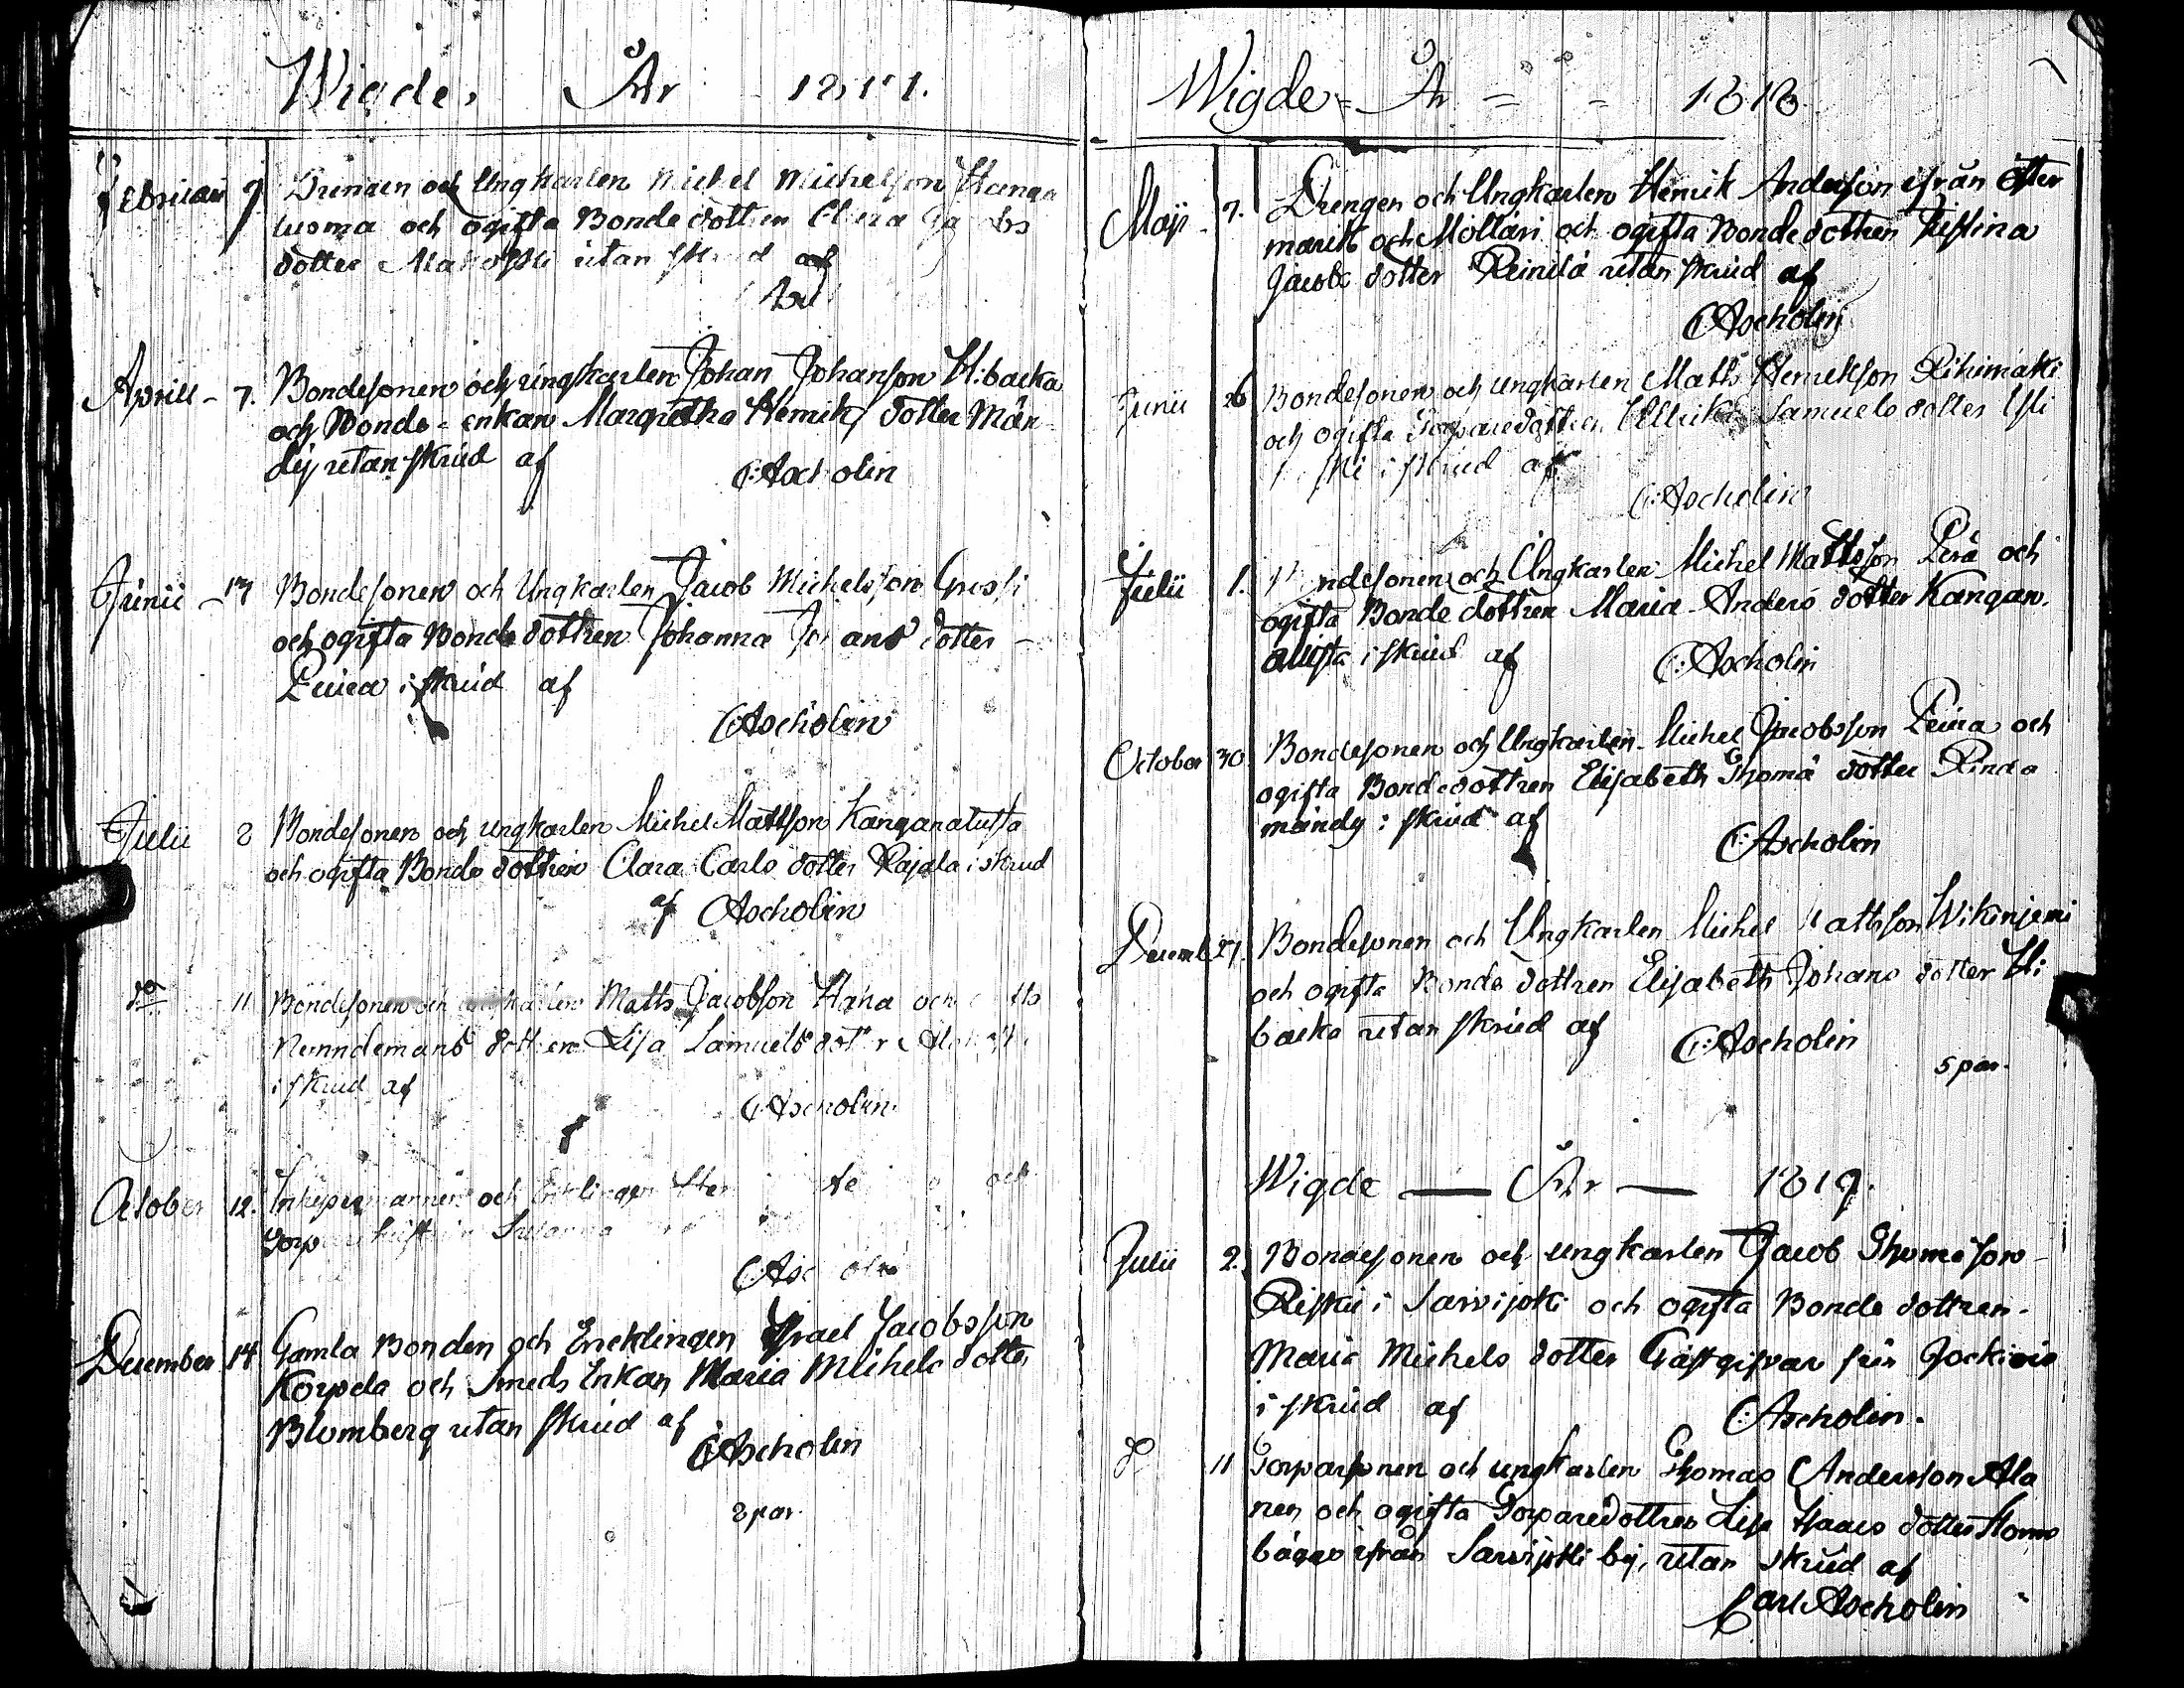 Wigde. År 1817.
Februari 9 Drengen och Ungkarlen Michel Michelsson Kanga
luoma och ogifta Bonde dottren
dotter utan skrud af
Aprill - 7. Bondesonen och ungkarlen Johan Johansson Hibacka
och Bonde-enkan Margretha Henriks dotter Män
dij utan skrud af C: Ascholin
Junii - 17 Bondesonen och Ungkarlen Jacob Michelsson
och ogifta Bonde dottren Johanna Johans dotter -
Peura i skrud af
C Ascholin
Julii 8 Bondesonen och ungkarlen Michel Mattsson Kanganalusta
och ogifta Bonde dottren Clara Carls dotter Rajala i skrud
af C Ascholin
do 11 Bondesonen och ungkarlen Matts Jacobsson och
Nemndemans dottren Lisa Samuels dotter
i skrud af
C: Ascholin
October 12. Inhyses mannen och Encklingen och
Torp Susanna
C Ascholin
December 14 Gamla Bonden och Encklingen Israel Jacobsson
Korpela och Smeds Enkan Maria Michels dotter
Blomberg utan skrud af
C: Ascholin
8 par.
Wigde = År = = 1818
Maji 7. Drengen och Ungkarlen Henrik Andersson ifrån Öster
mark och Mölläri och ogifta Bonde dottren Justina
Jacobs dotter Reinilä utan skrud af
C Ascholin
Junii 26 Bondesonen och ungkarlen Matts Henriksson Rihimäki
och ogifta Torparedottren Ullrika Samuels dotter
i skrud af
C: Ascholin
Julii 1. Bondesonen och Ungkarlen Michel Mattsson Perä och
ogifta Bonde dottren Maria Anders dotter Kangan
alusta i skrud af C: Ascholin
October 30 Bondesonen och Ungkarlen Michel Jacobsson Peura och
ogifta Bondedottren Elisabeth Thomä dotter Rinda
mändy i skrud af
C: Ascholin
Decemb. 27. Bondesonen och Ungkarlen Michel Mattsson
och ogifta Bonde dottren Elisabeth Johans dotter Hi
backa utan skrud af C: Ascholin
5 par.
Wigde — År — 1819.
Julii 2. Bondesonen och ungkarlen Jacob Thomesson -
i Sarvijoki och ogifta Bonde dottren -
Maria Michels dotter Gästgifvar från Jockivis
i skrud af C: Ascholin.
do 11 Torparsonen och ungkarlen Thomas Andersson Ala
nen och ogifta Torparedottren Lisa Isaacs dotter
ifrån Sarvijoki by, utan skrud af
Carl Ascholin